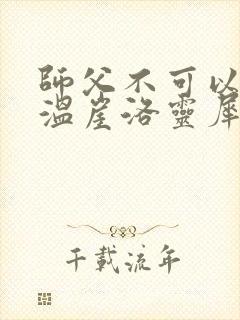 師父不可以
溫崖洛靈犀
千載流年